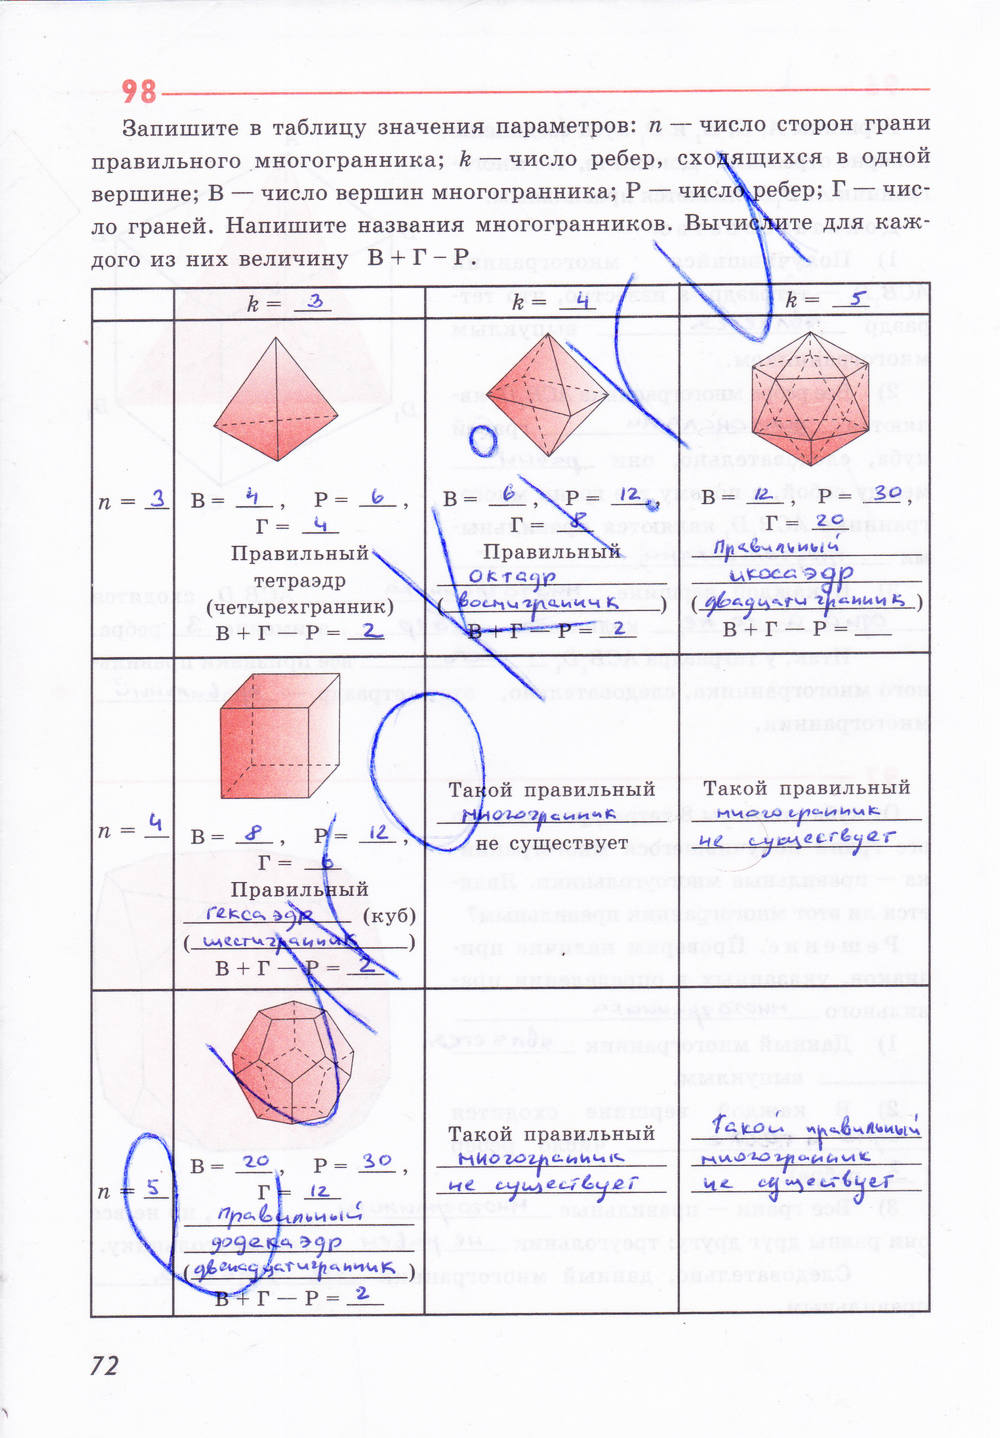 98
Запишите в таблицу значения параметров: n — число сторон грани
правильного многогранника; k — число ребер, сходящихся в одной
вершине; В — число вершин многогранника; Р — число ребер; Г — чис-
ло граней. Напишите названия многогранников. Вычислите для каж-
дого из них величину В + Г – Р.
k = 3
k = 4
k = 5
n = 3
В = 4, Р = 6,
Г = 4
Правильный
тетраэдр
(четырехгранник)
В + Г — Р = 2
В = 6, Р = 12,
Г = 8
Правильный
октадр
(восмигранник)
В + Г — Р = 2
В = 12, Р = 30,
Г = 20
Правильный
икосаэдр
(двадцатигранник)
В + Г — Р =
n = 4
В = 8, Р = 12,
Г = 6
Правильный
гексаэдр (куб)
(шестигранник)
В + Г — Р = 2
Такой правильный
многогранник
не существует
Такой правильный
многогранник
не существует
n = 5
В = 20, Р = 30,
Г = 12
Правильный
додекаэдр
(двенадцатигранник)
В + Г — Р = 2
Такой правильный
многогранник
не существует
Такой правильный
многогранник
не существует
72